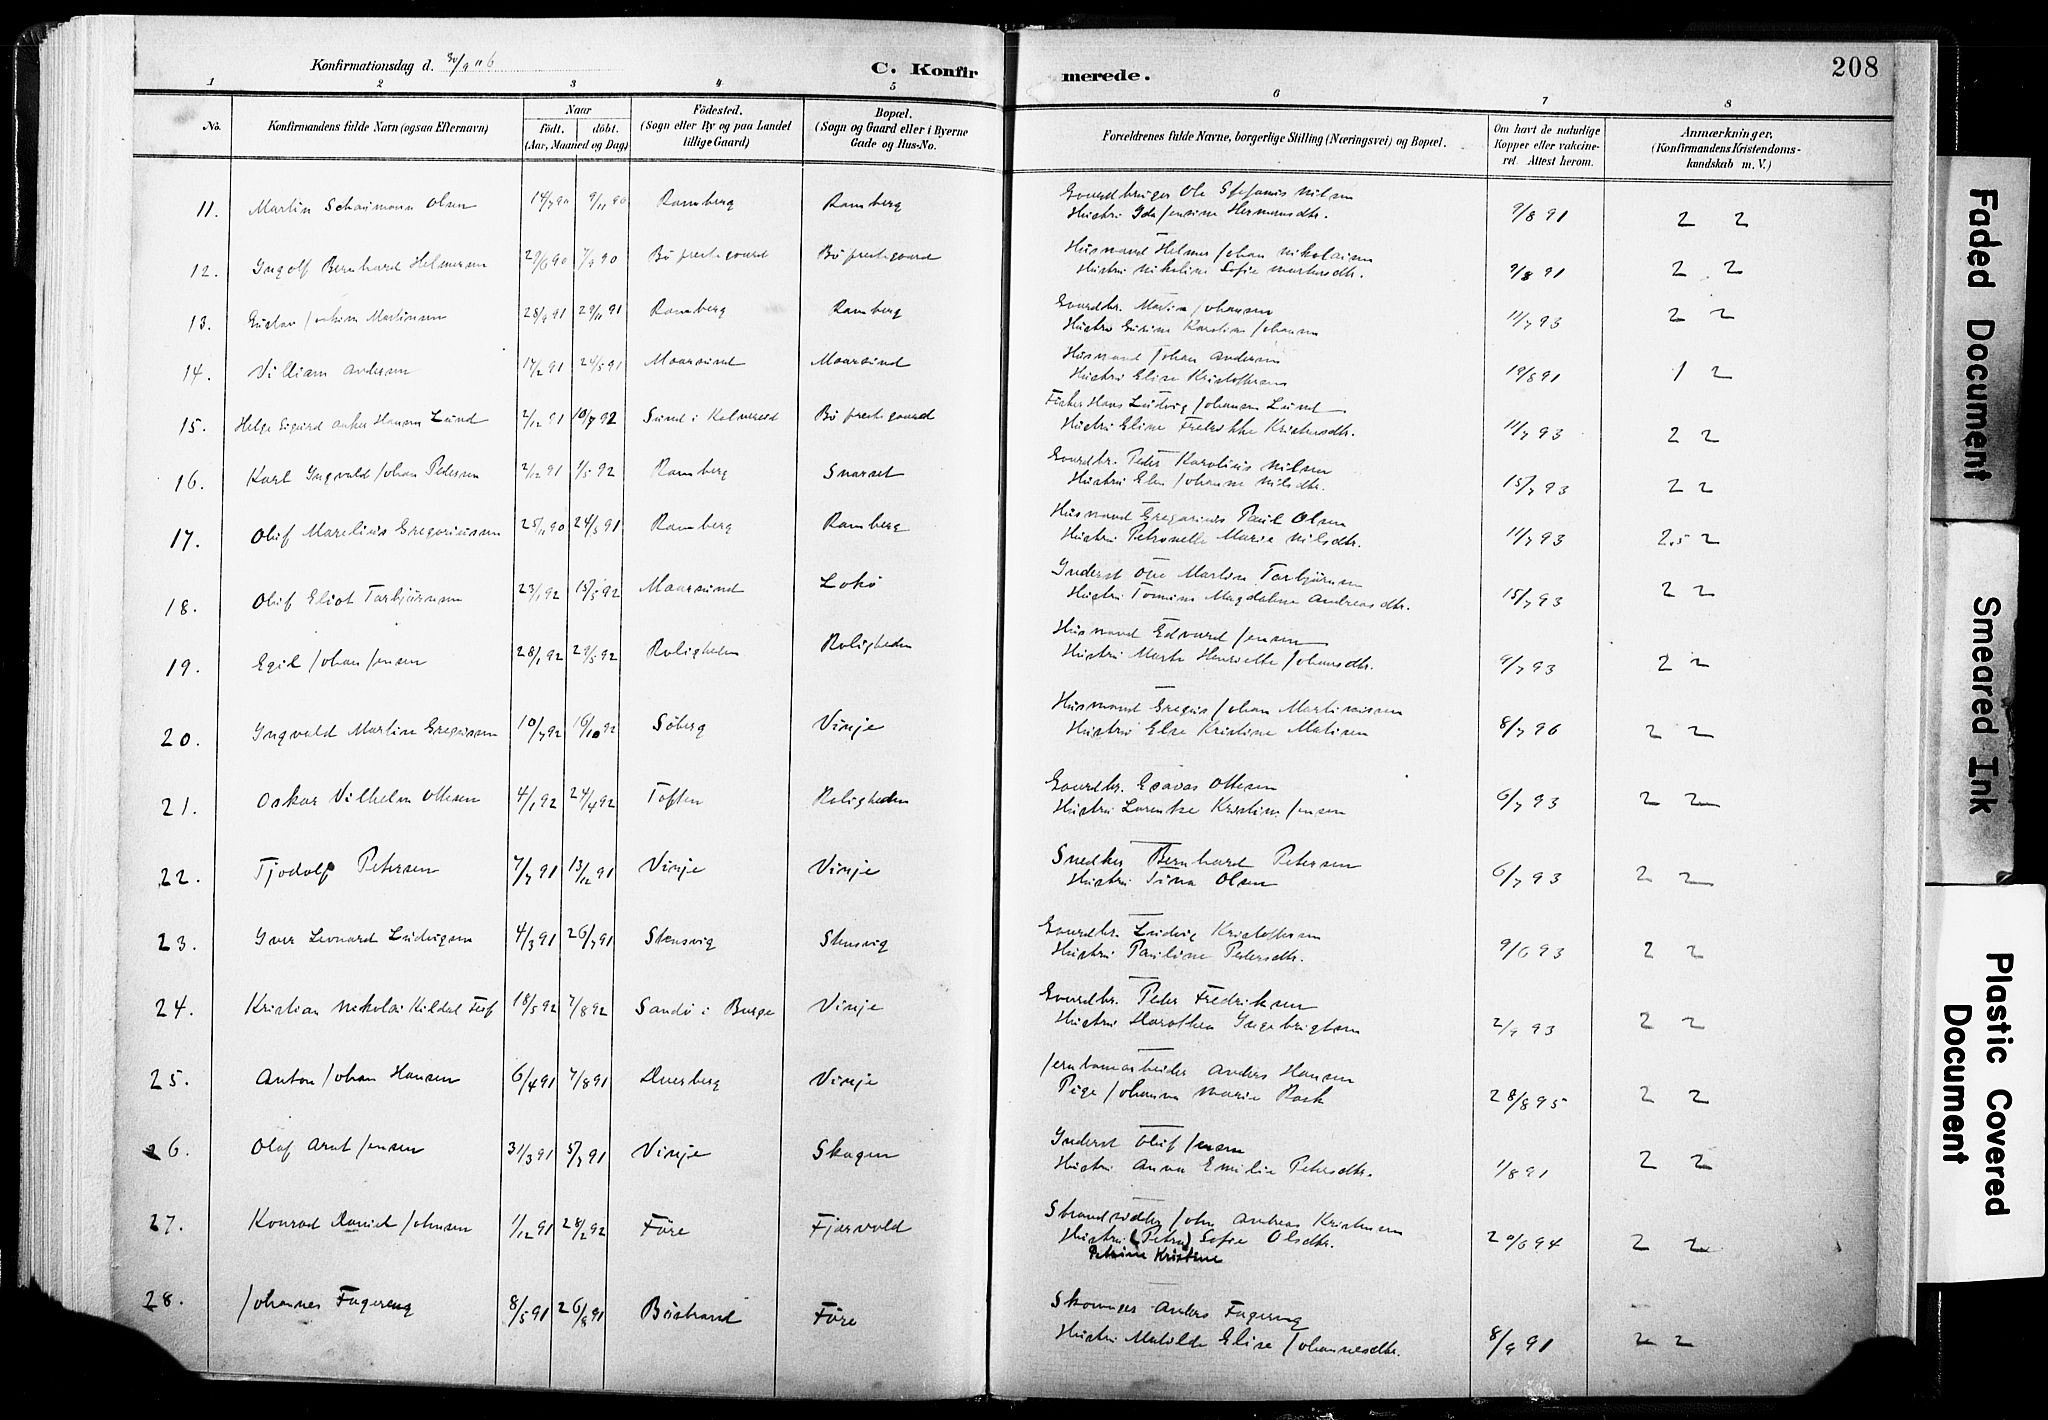 Konfirmationsdag d. 30/9 06
C. Konfir merede.
208
1 2 3 4 5 6 7 8
No.
Konfirmandens fulde Navn (ogsaa Efternavn)
Naar
födt. döbt.
(Aar, Maaned og Dag)
Födested.
(Sogn eller By og paa Landet
tillige Gaard)
Bopæl.
(Sogn og Gaard eller i Byerne
Gade og Hus-No.
Forældrenes fulde Navne, borgerlige Stilling (Næringsvei) og Bopæl.
Om havt de naturlige
Kopper eller vakcine-
ret. Attest herom.
Anmærkninger,
(Konfirmandens Kristendoms-
kundskab m. V.)
Gaardbruger Ole Stefanus Nilsen
11. Martin Olsen 14/7 90 9/11 90 Ramberg Ramberg Hustru Ida Jensine Hermansdtr. 9/8 91 2 2
Husmand Helmer Johan Nikolaisen
12. Ingolf Bernhard Helmersen 29/6 90 7/9 90 Bö prestegaard Bö prestegaard Hustru Nikoline Sofie Martinsdtr. 9/8 91 2 2
Gaardbr. Martin Johansen
13. Gustav Joakim Martinsen 28/9 91 29/11 91 Ramberg Ramberg Hustru Karoline Johansen 11/7 93 2 2
Husmand Johan Andersen
14. Villiam Andersen 17/2 91 24/5 91 Maarsund Maarsund Hustru Elise Kristoffersen 19/8 91 1 2
Fisker Hans Ludvig Johansen Lund
15. Helge Sigurd Anker Hansen Lund 2/12 91 10/7 92 Sund i Bö prestegaard Hustru Eline Fredrikke 11/7 93 2 2
Gaardbr. Peder Karolius Nilsen
16. Karl Ingvald Johan Pedersen 2/12 91 1/5 92 Ramberg Snarset Hustru Elen Johanne Nilsdtr. 15/7 93 2 2
Husmand Gregorius Paul Olsen
17. Oluf Marelius Gregoriussen 25/11 90 24/5 91 Ramberg Ramberg Hustru Petronelle Marie Nilsdtr. 11/7 93 2,5 2
Inderst Martin Torbjörnsen
18. Oluf Eliot Torbjörnsen 23/1 92 15/5 92 Maarsund Lokö Hustru Magdalene Andreasdtr. 15/7 93 2 2
Husmand Edvard Jensen
19. Egil Johan Jensen 28/1 92 29/5 92 Roligheden Roligheden Hustru Marte Henriette Johansdtr. 9/7 93 2 2
Husmand Gregus Johan Martinussen
20. Ingvald Martin Gregussen 10/7 92 16/10 92 Söberg Vinje Hustru Else Kristine Matisen 8/7 96 2 2
Gaardbr. Esaias Ottesen
21. Oskar Vilhelm Ottesen 4/1 92 24/4 92 Toften Roligheden Hustru Lorentze Kristine Jensen 6/7 93 2 2
Snedker Bernhard Petersen
22. Tjodolf Petersen 7/7 91 13/12 91 Vinje Vinje Hustru Tina Olsen 6/7 93 2 2
Gaardbr. Ludvig Kristoffersen
23. Iver Leonard Ludvigsen 4/3 91 26/7 91 Stensvig Stensvig Hustru Pauline Pedersdtr. 9/6 93 2 2
Gaardbr. Peder Fredriksen
24. Kristian Nikolai Kildal 18/5 92 7/8 92 Sandö i Vinje Hustru Ingebrigtsen 2/9 93 2 2
Jernbanearbeider Anders Hansen
25. Anton Johan Hansen 6/4 91 7/8 91 Dverberg Vinje Pige Johanna Marie Rask 28/8 95 2 2
Inderst Oluf Jensen
26. Olaf Arnt Jensen 31/3 91 5/7 91 Vinje Skagen Hustru Anna Emilie Petersdtr. 1/8 91 2 2
Strandsidder John Andreas Kristensen
27. Konrad Daniel Johnsen 1/12 91 28/2 92 Före Fjærvold Hustru (Petra) Sofie Olsdtr. 20/6 94 2 2
Petrine Kristine
Skomager Anders Fagereng
28. Johannes Fagereng 8/5 91 26/8 91 Böstrand Före Hustru Matilde Elise Johannesdtr. 8/9 91 2 2
Faded Document
Smeared Ink
Plastic Covered
Document